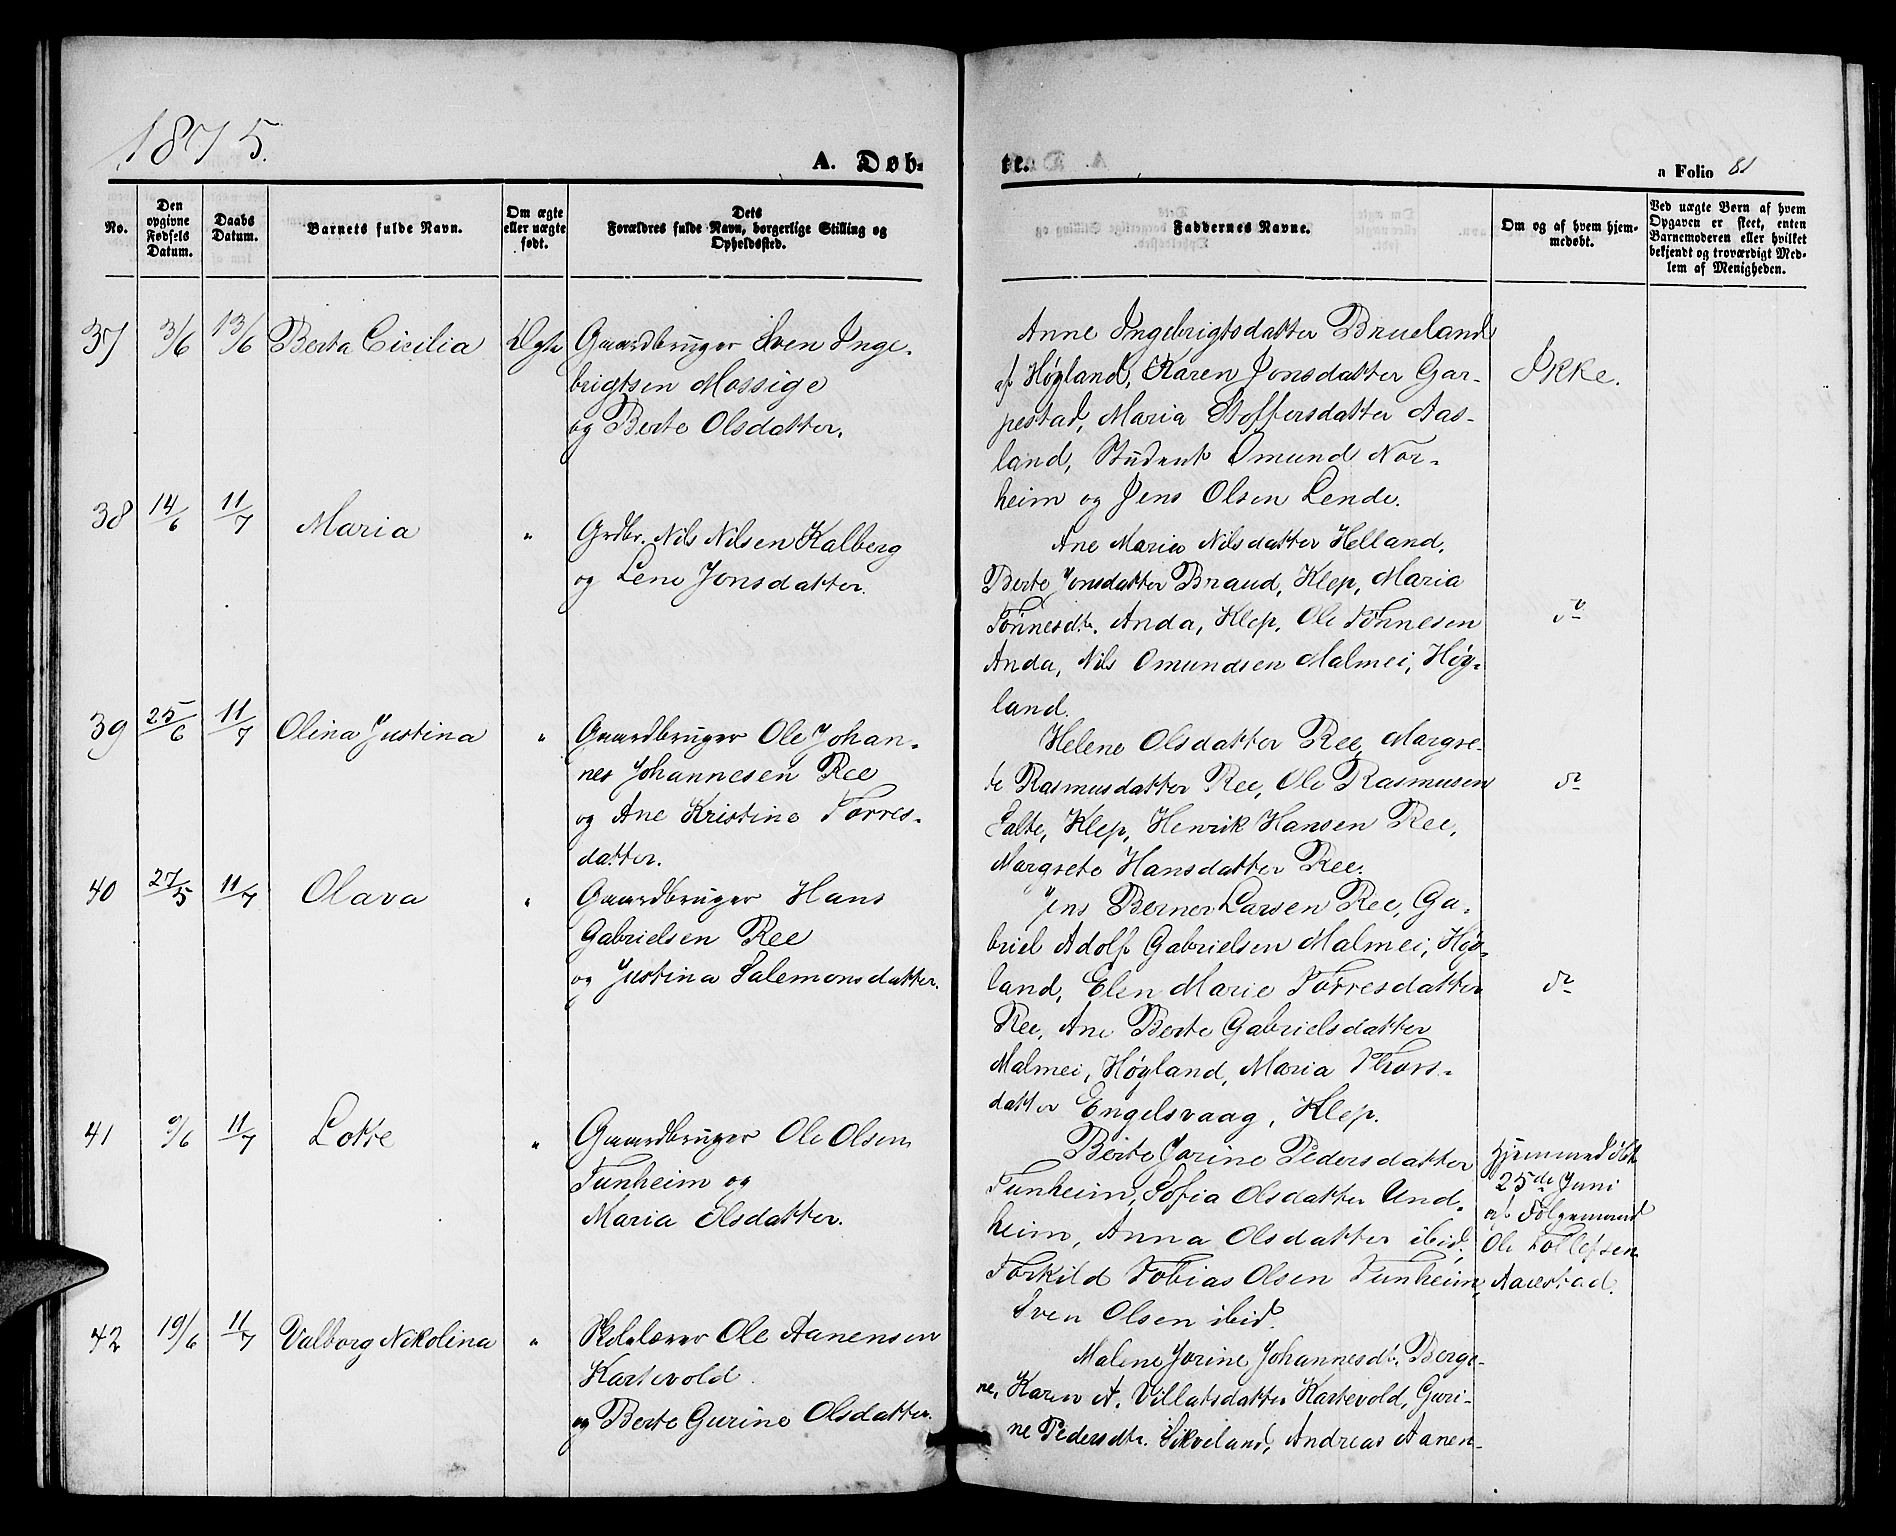 1875.
A. Døb-
te.
a Folio 81
No.
Den opgivne Fødsels Datum.
Daabs Datum.
Barnets fulde Navn.
Om ægte eller uægte født.
Dets Forældres fulde Navn, borgerlige Stilling og Opholdssted.
Faddernes Navne.
Om og af hvem hjemmedøbt.
Ved uægte Børn af hvem Opgaven er skeet, enten Barnemoderen eller hvilket bekjendt og troværdigt Medlem af Menigheden.
37 3/6 13/6 Berta Cicilia Ægte
Gaardbruger Sven Inge-
brigtsen Mossige
og Berte Olsdatter.
Anne Ingebrigtsdatter Brueland
af Høgland, Karen Jonsdatter Gar-
pestad, Maria Stoffersdatter Aas-
land, Student Omund Nor-
heim og Jens Olsen Lende.
Ikke.
38 14/6 11/7 Maria "
Grdbr. Nils Nilsen Kalberg
og Lene Jonsdatter.
Ane Maria Nilsdatter Helland,
Berte Jonsdatter Braud, Klep, Maria
Tönnesdtr. Anda, Klep, Ole Tönnesen
Anda, Nils Omundsen Malmei, Høg-
land.
do
39 25/6 11/7 Olina Justina "
Gaardbruger Ole Johan-
nes Johannesen Ree
og Ane Kristine Torres-
datter.
Helene Olsdatter Ree, Margre-
te Rasmusdatter Ree, Ole Rasmusen
Salte, Klep, Henrik Hansen Ree,
Margrete Hansdatter Ree.
do
40 27/5 11/7 Olava "
Gaardbruger Hans
Gabrielsen Ree
og Justina Salemonsdatter.
Jens Berner Larsen Ree, Ga-
briel Adolf Gabrielsen Malmei, Høg-
land, Elen Marie Torresdatter
Ree, Ane Berte Gabrielsdatter
Malmei, Høgland, Maria Thors-
datter Engelsvaag, Klep.
do
41 9/6 11/7 Lotte "
Gaardbruger Ole Olsen
Tunheim og
Maria Elsdatter.
Berte Jorine Pedersdatter
Tunheim, Sofia Olsdatter Und-
heim, Anna Olsdatter ibid,
Torkild Tobias Olsen Tunheim,
Sven Olsen ibid.
Hjemmedøbt
25de Juni
af Følgemand
Ole Tollefsen
Aarestad.
42 19/6 11/7 Valborg Nikolina "
Skolelærer Ole Aanensen
Kartevold
og Berte Gurine Olsdatter.
Malene Jorine Johannesdtr. Berge-
ne, Karen A. Villatsdatter Kartevold, Guri-
ne Pedersdtr. Sikveland, Andreas Aanen-